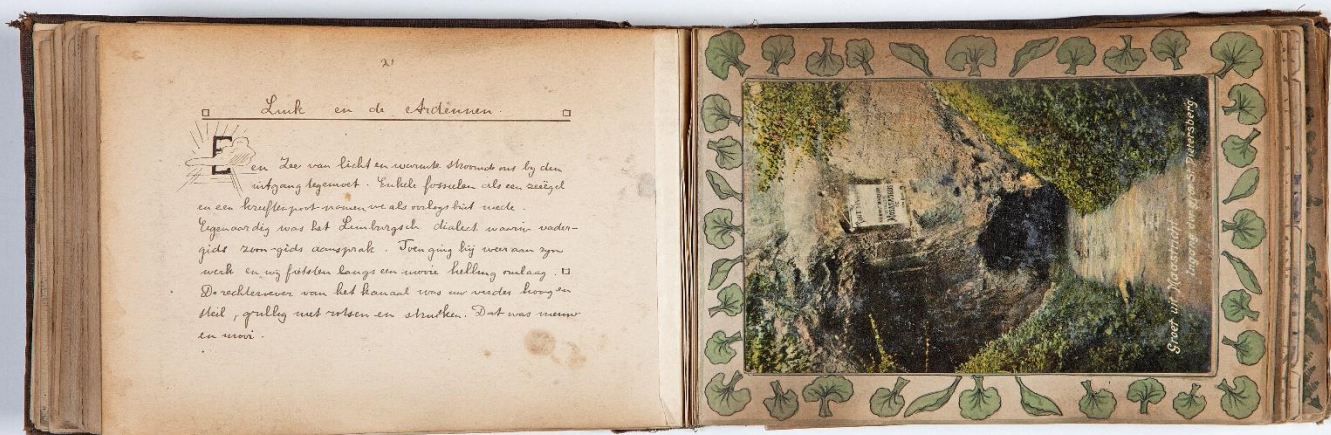 21
Luik en de Ardennen.
Een Zee van licht en warmte stroomde ons bij den
uitgang tegemoet. Enkele fossielen als een zeeëgel
en een kreeftenpoot namen we als oorlogsbuit mede.
Eigenaardig was het Limburgsch dialect waarin vader-
gids zoon-gids aansprak. Toen ging hij weer aan zijn
werk en wij fietsten langs een mooie helling omlaag.
De rechteroever van het kanaal was nu verder hoog en
steil, grillig met rotsen en struiken. Dat was nieuw
en mooi.
Groet uit Maastricht
Ingang der grot St. Pietersberg